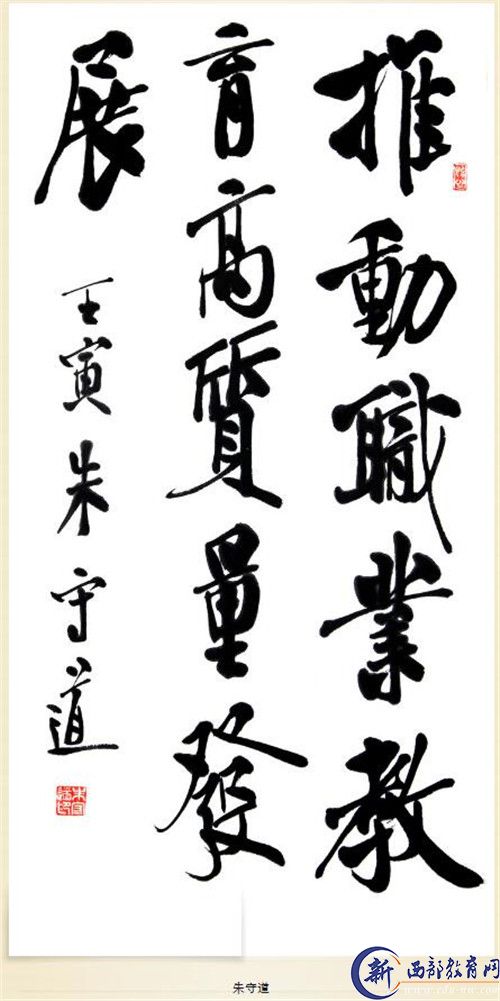 推動職業教
育高質量發
展
壬寅朱守道
朱守道
新西部教育网